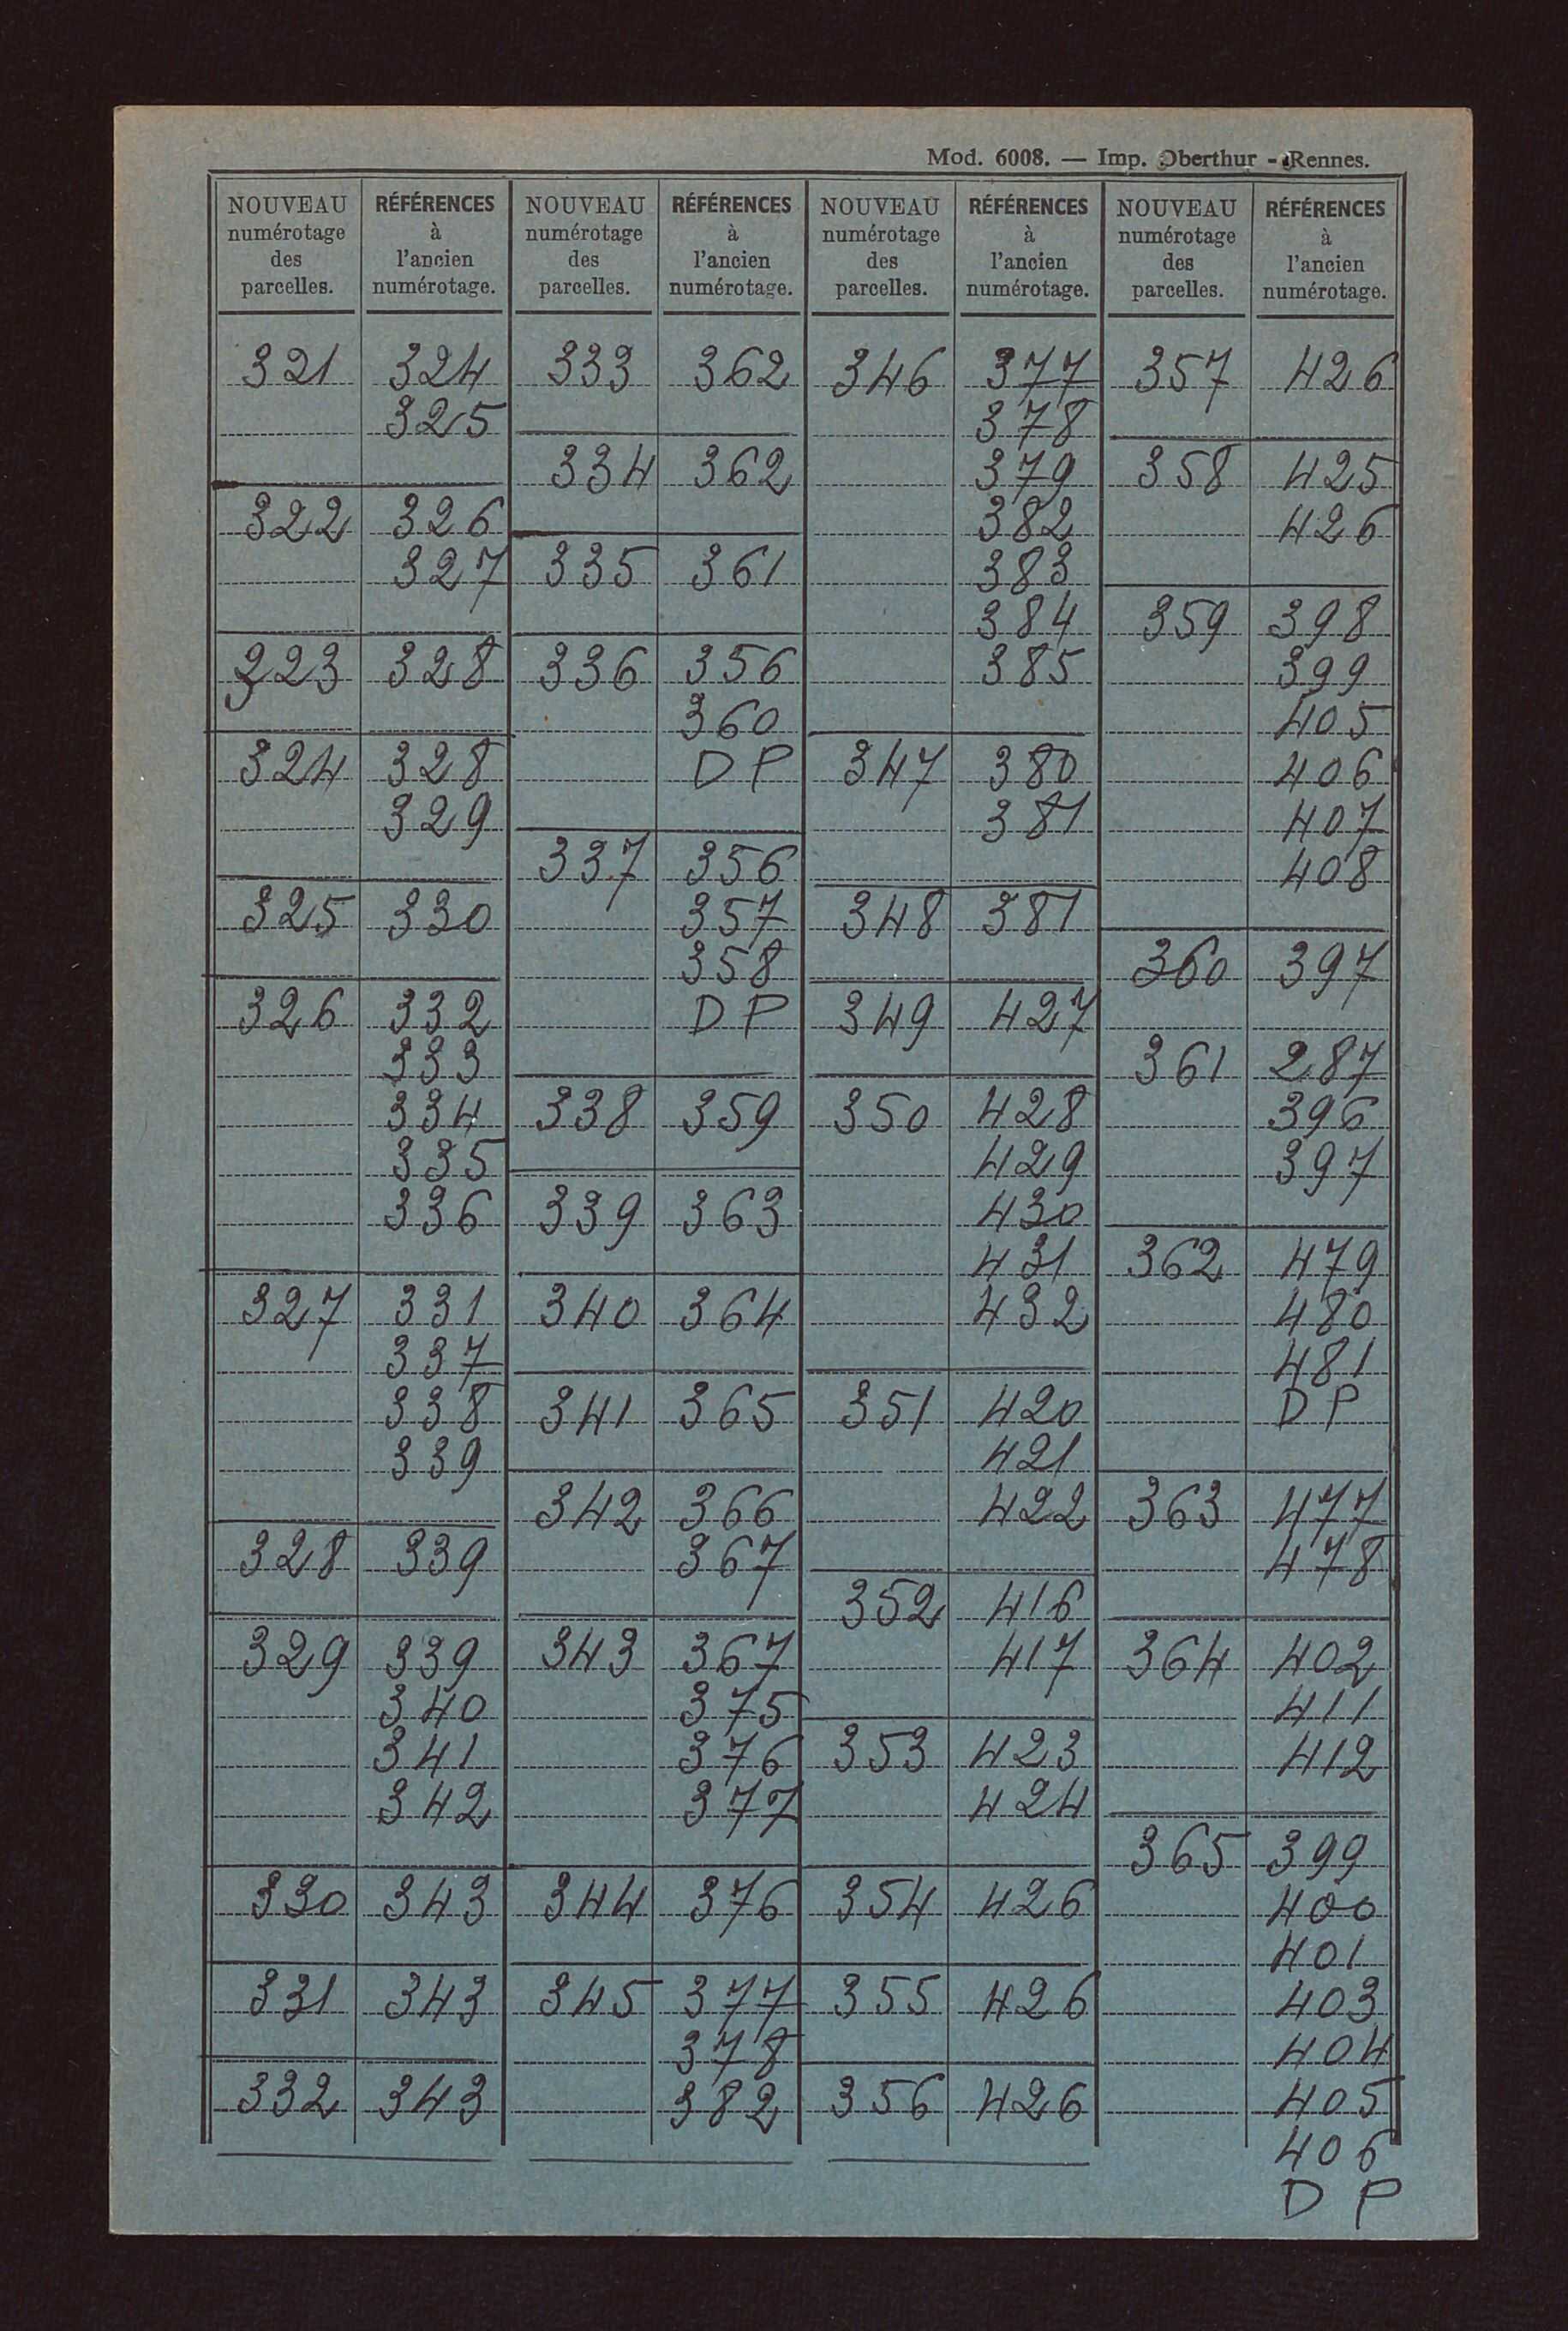 Mod. 6008. — Imp. Oberthur - Rennes.
NOUVEAU numérotage des parcelles.
RÉFÉRENCES à l'ancien numérotage.
NOUVEAU numérotage des parcelles.
RÉFÉRENCES à l'ancien numérotage.
NOUVEAU numérotage des parcelles.
RÉFÉRENCES à l'ancien numérotage.
NOUVEAU numérotage des parcelles.
RÉFÉRENCES à l'ancien numérotage.
321 324
325
322 326
327
323 328
324 328
329
325 330
326 332
333
334
335
336
327 331
337
338
339
328 339
329 339
340
341
342
330 343
331 343
332 343
333 362
334 362
335 361
336 356
360
DP
337 356
357
358
DP
338 359
339 363
340 364
341 365
342 366
367
343 367
375
376
377
344 376
345 377
378
382
346 377
378
379
382
383
384
385
347 380
381
348 381
349 427
350 428
429
430
431
432
351 420
421
422
352 416
417
353 423
424
354 426
355 426
356 426
357 426
358 425
426
359 398
399
405
406
407
408
360 397
361 287
396
397
362 479
480
481
DP
363 477
478
364 402
411
412
365 399
400
401
403
404
405
406
DP